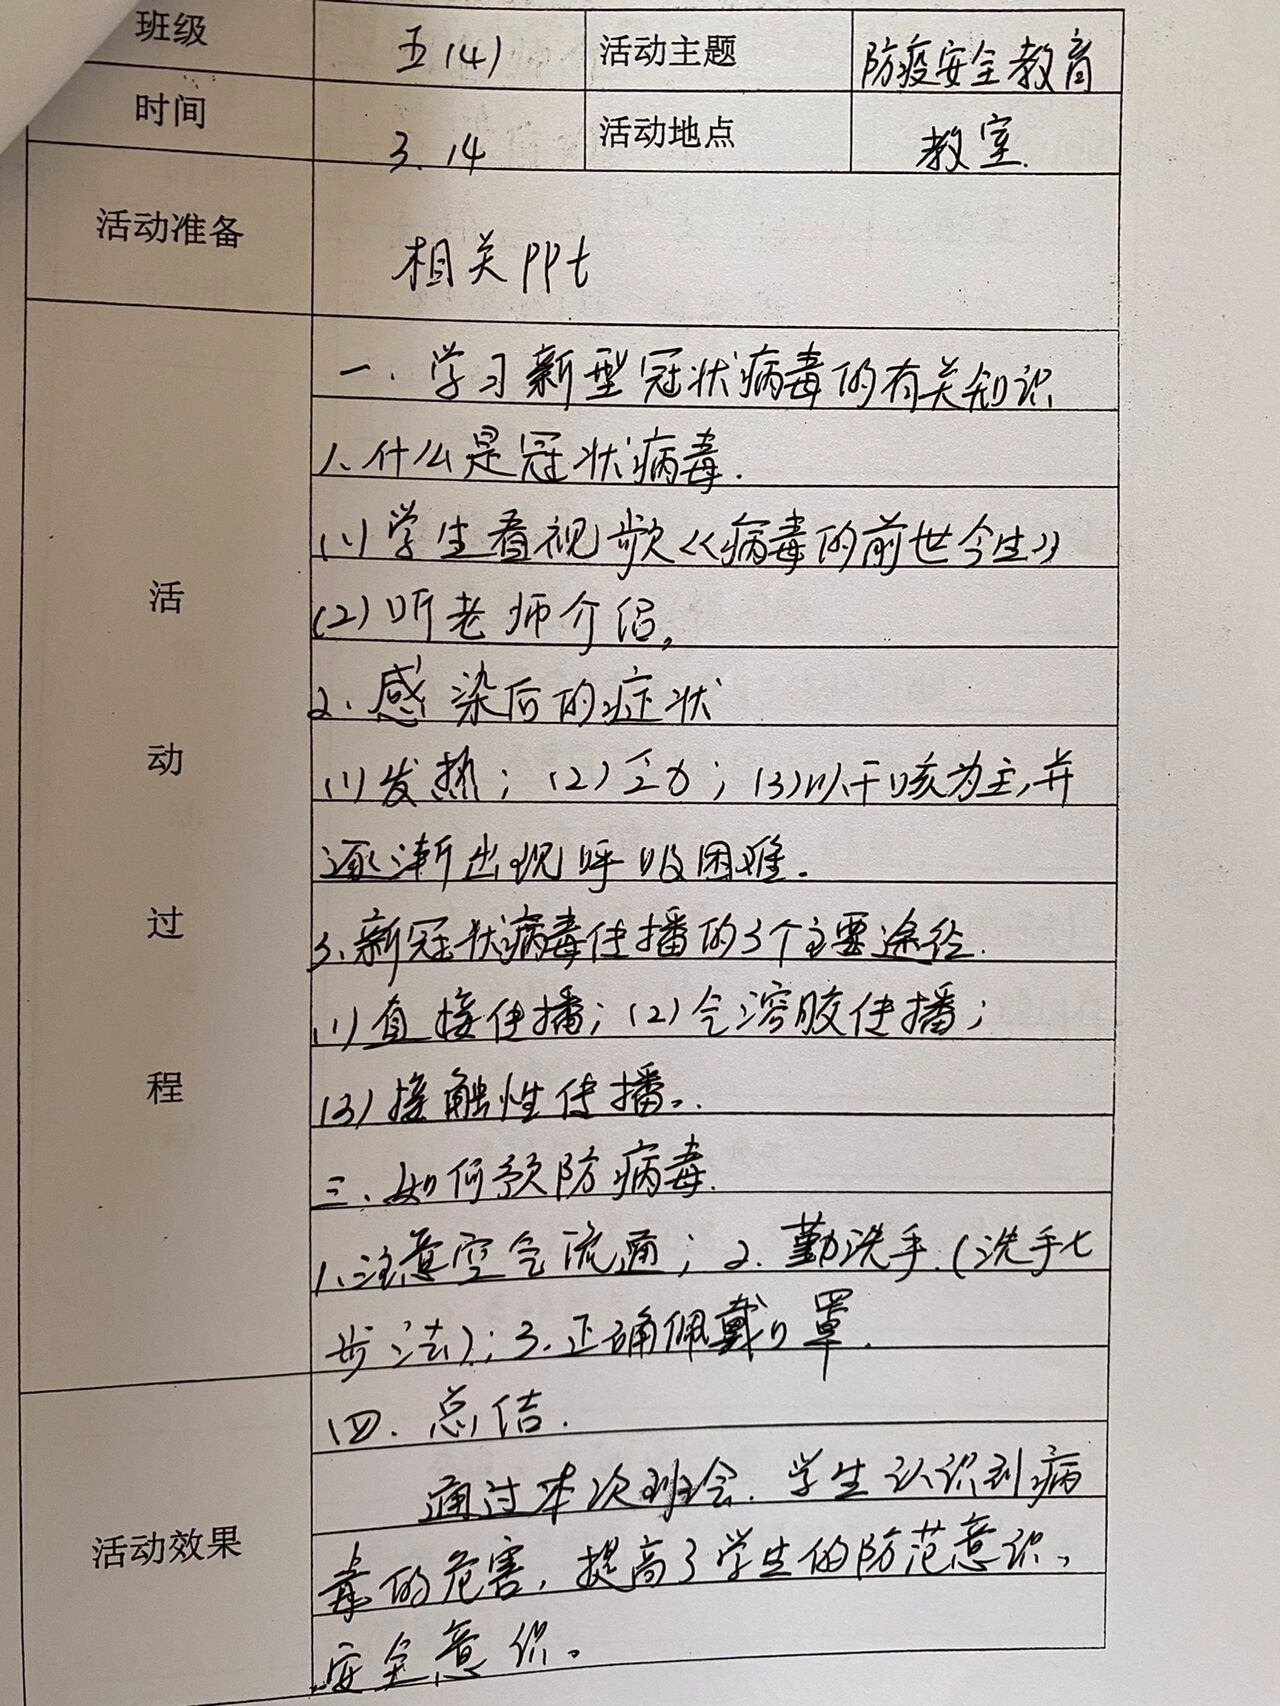 班级 五(4) 活动主题 防疫安全教育
时间 3.14 活动地点 教室.
活动准备 相关ppt
活动过程
一.学习新型冠状病毒的有关知识
1.什么是冠状病毒.
(1)学生看视频《病毒的前世今生》
(2)听老师介绍,
2.感染后的症状
(1)发热;(2)乏力;(3)以干咳为主,并
逐渐出现呼吸困难.
3.新冠状病毒传播的3个主要途径.
(1)直接传播;(2)气溶胶传播;
(3)接触性传播..
三.如何预防病毒.
1.注意空气流通;2.勤洗手.(洗手七
步法);3.正确佩戴口罩.
四.总结.
活动效果
通过本次班会.学生认识到病
毒的危害,提高了学生的防范意识、
安全意识。